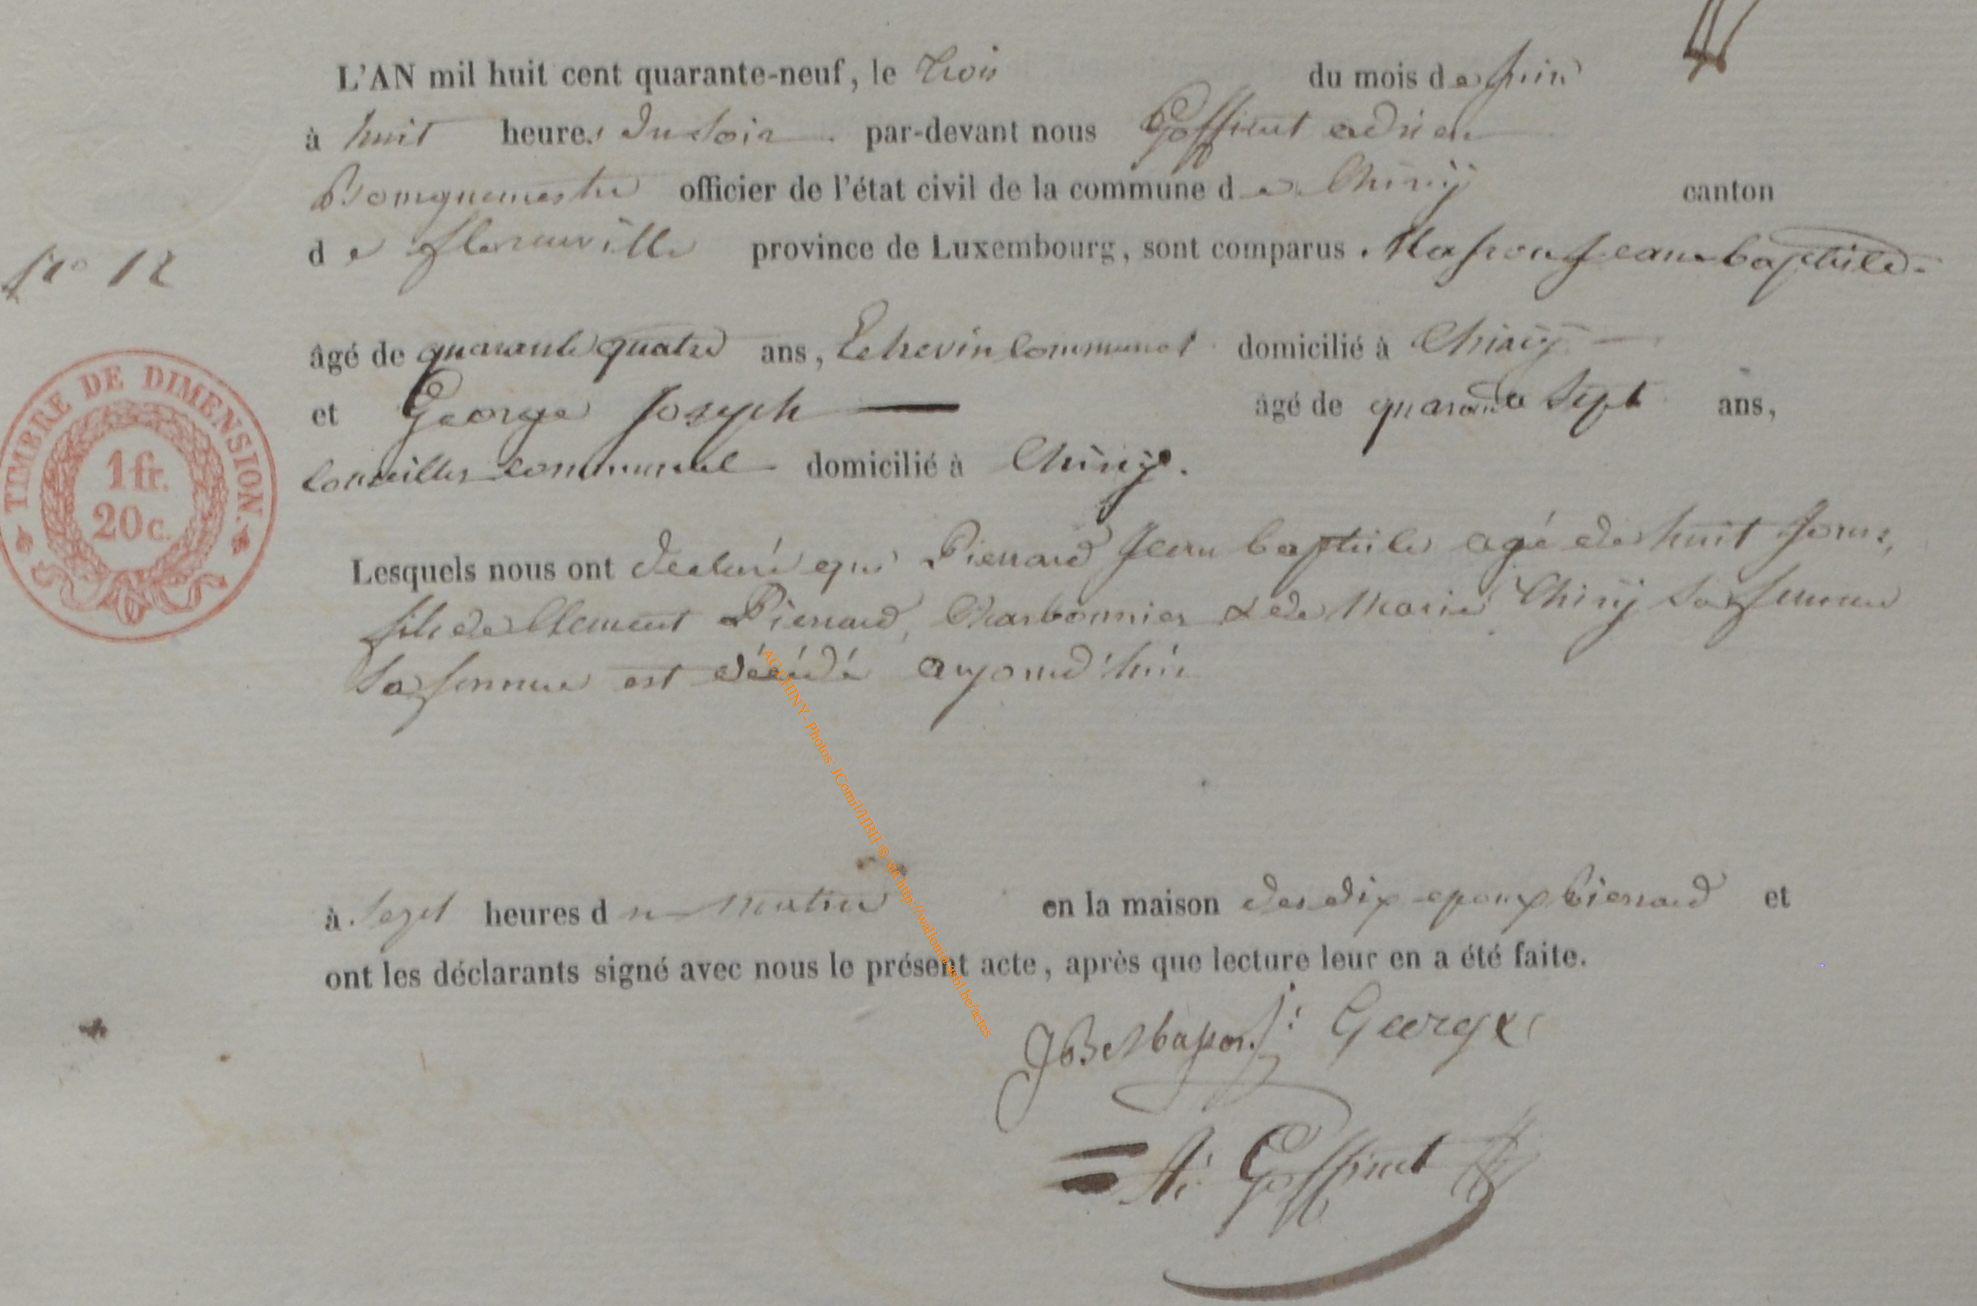 L'AN mil huit cent quarante-neuf, le trois du mois de juin
à huit heures du soir par-devant nous Goffinet adrien
Bourguemestre officier de l'état civil de la commune de Chiny canton
de florenville province de Luxembourg, sont comparus Masson Jean baptiste
N° 12
âgé de quarante quatre ans, Echevin Communal domicilié à Chiny
et George Joseph âgé de quarante Sept ans,
Conseiller communal domicilié à Chiny.
TIMBRE DE DIMENSION.
1 fr.
20 c.
Lesquels nous ont declaré que Pierrard Jean baptiste agé de huit Jours,
fils de Clement Pierrard, Charbonnier & de Marie Chiny Sa femme
Sa femme est décédé aujourd'hui
à Sept heures du matin en la maison des dix epoux Pierrard et
ont les déclarants signé avec nous le présent acte, après que lecture leur en a été faite.
JB Masson J: George
A: Goffinet